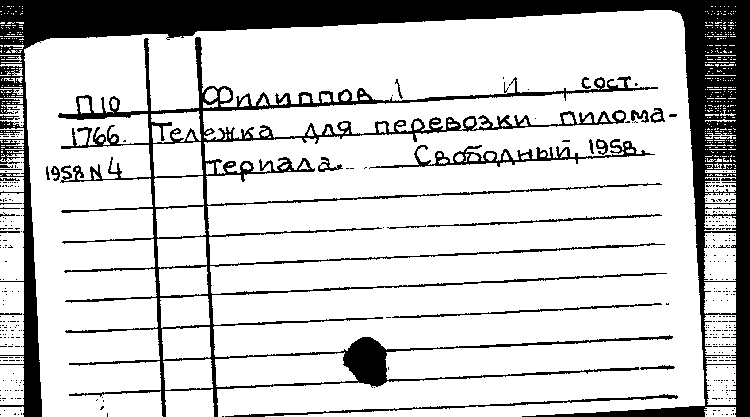 П10 Филиппов И , сост.
1766. Тележка для перевозки пилома-
1958 N 4 териала. Свободный, 1958.